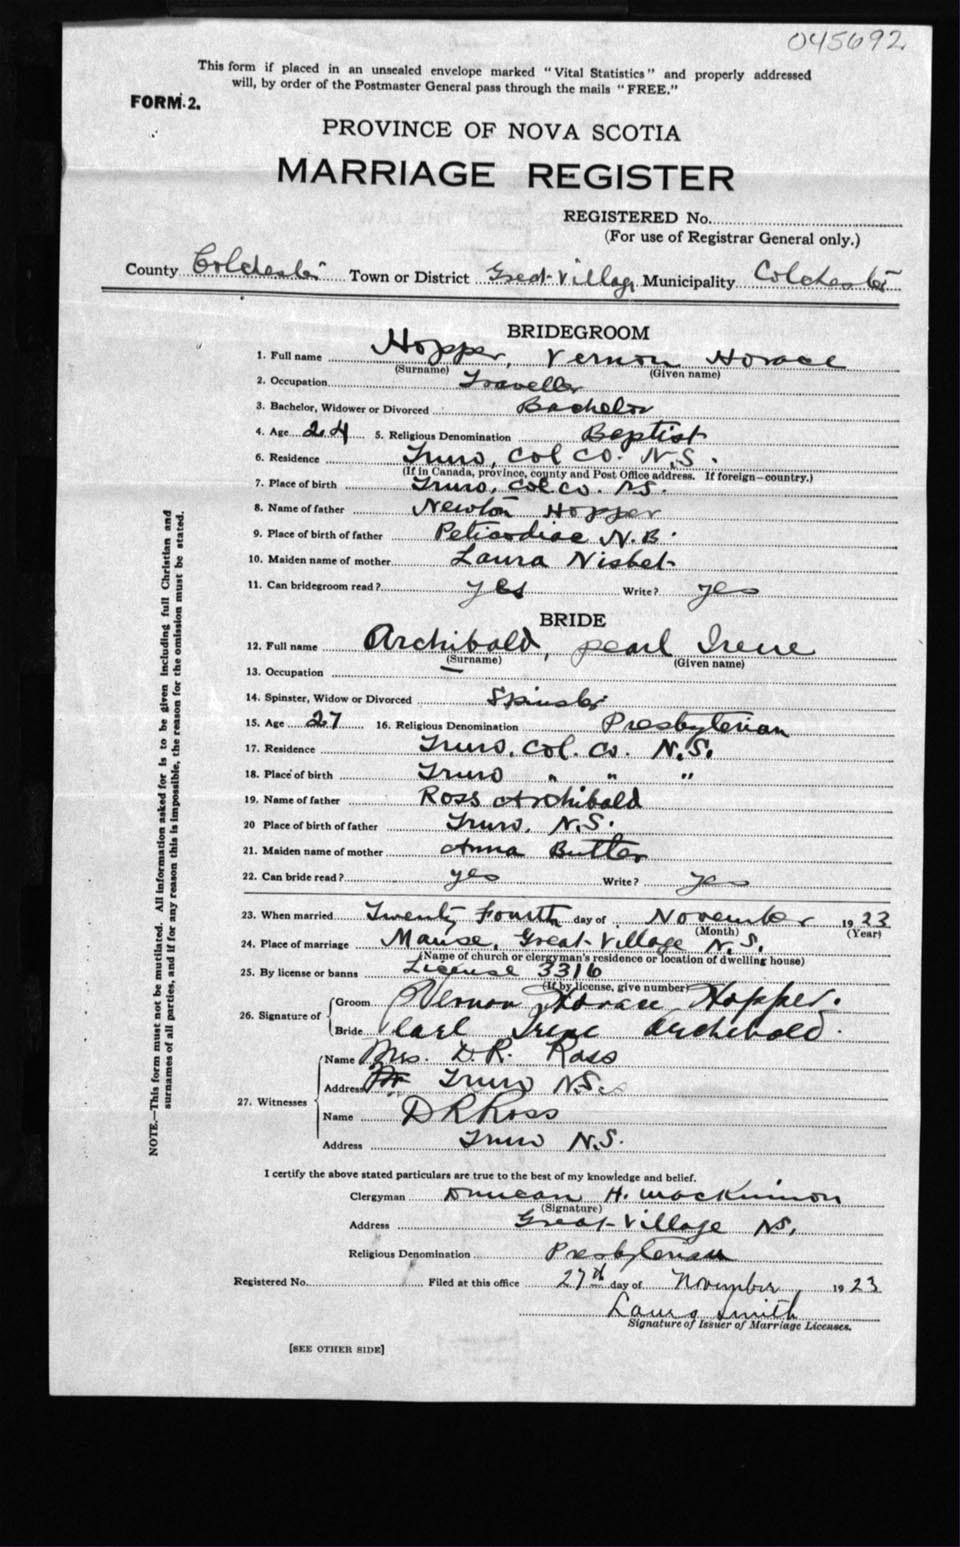 045692
This form if placed in an unsealed envelope marked "Vital Statistics" and properly addressed
will, by order of the Postmaster General pass through the mails "FREE."
FORM 2.
PROVINCE OF NOVA SCOTIA
MARRIAGE REGISTER
REGISTERED No.
(For use of Registrar General only.)
County Colchester Town or District Great Village Municipality Colchester
BRIDEGROOM
1. Full name Hopper, Vernon Horace
(Surname) (Given name)
2. Occupation Traveller
3. Bachelor, Widower or Divorced Bachelor
4. Age 24 5. Religious Denomination Baptist
6. Residence Truro, Col Co. N.S.
(If in Canada, province, county and Post Office address. If foreign—country.)
7. Place of birth Truro, Col Co. N.S.
8. Name of father Newton Hopper
9. Place of birth of father Peticodiac N.B.
10. Maiden name of mother Laura Nisbet
11. Can bridegroom read? yes Write? yes
BRIDE
12. Full name Archibald, Pearl Irene
(Surname) (Given name)
13. Occupation —
14. Spinster, Widow or Divorced Spinster
15. Age 27 16. Religious Denomination Presbyterian
17. Residence Truro, Col. Co. N.S.
18. Place of birth Truro " " "
19. Name of father Ross Archibald
20 Place of birth of father Truro, N.S.
21. Maiden name of mother Anna Butler
22. Can bride read? yes Write? yes
23. When married Twenty Fourth day of November 1923
(Month) (Year)
24. Place of marriage Manse, Great Village N.S.
(Name of church or clergyman's residence or location of dwelling house)
25. By license or banns License 3316
(If by license, give number)
26. Signature of Groom Vernon Horace Hopper.
Bride Pearl Irene Archibald.
27. Witnesses Name Mrs. D.R. Ross
Address Truro N.S.
Name D R Ross
Address Truro N.S.
I certify the above stated particulars are true to the best of my knowledge and belief.
Clergyman Duncan H. MacKinnon
(Signature)
Address Great Village NS.
Religious Denomination Presbyterian
Registered No. Filed at this office 27th day of November 1923
Laura Smith
Signature of Issuer of Marriage Licenses.
[SEE OTHER SIDE]
NOTE.—This form must not be mutilated. All information asked for is to be given including full Christian and
surnames of all parties, and if for any reason this is impossible, the reason for the omission must be stated.